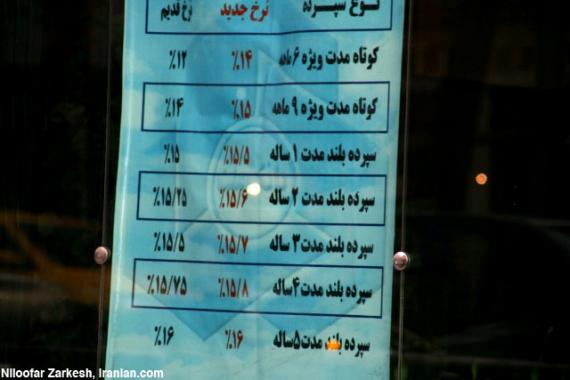 نوع سپرده نرخ جدید نرخ قدیم
کوتاه مدت ویژه ۶ ماهه ٪۱۴ ٪۱۲
کوتاه مدت ویژه ۹ ماهه ٪۱۵ ٪۱۴
سپرده بلند مدت ۱ ساله ٪۱۵/۵ ٪۱۵
سپرده بلند مدت ۲ ساله ٪۱۵/۶ ٪۱۵/۲۵
سپرده بلند مدت ۳ ساله ٪۱۵/۷ ٪۱۵/۵
سپرده بلند مدت ۴ ساله ٪۱۵/۸ ٪۱۵/۷۵
سپرده بلند مدت ۵ ساله ٪۱۶ ٪۱۶
Niloofar Zarkesh, Iranian.com